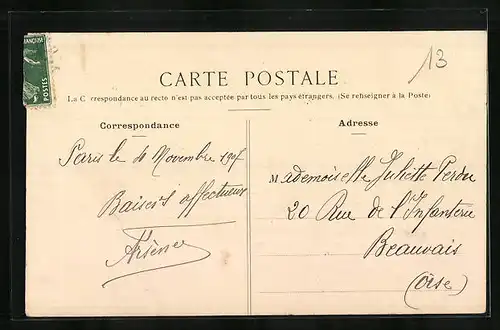 13
FRANÇAISE
POSTES
CARTE POSTALE
La Correspondance au recto n'est pas acceptée par tous les pays étrangers. (Se renseigner à la Poste)
Correspondance
Paris le 4 Novembre 1907
Baisers affectueux
Arsène
Adresse
Mademoiselle Juliette Perdu
20 Rue de l'Infanterie
Beauvais
(Oise)